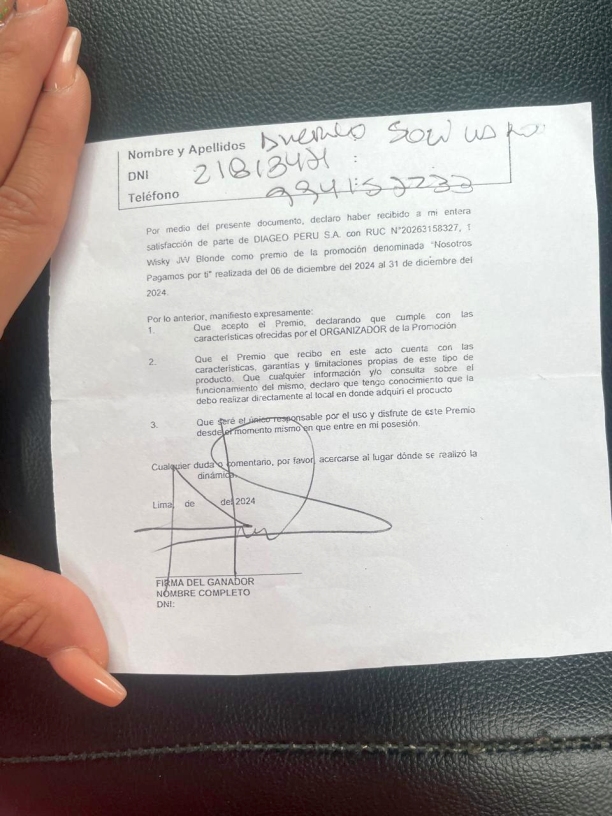 Nombre y Apellidos
DNI 21813421
Teléfono
Por medio del presente documento, declaro haber recibido a mi entera
satisfacción de parte de DIAGEO PERU S.A. con RUC N°20263158327, 1
Wisky JW Blonde como premio de la promoción denominada "Nosotros
Pagamos por ti" realizada del 06 de diciembre del 2024 al 31 de diciembre del
2024.
Por lo anterior, manifiesto expresamente:
1. Que acepto el Premio, declarando que cumple con las
características ofrecidas por el ORGANIZADOR de la Promoción
2. Que el Premio que recibo en este acto cuenta con las
características, garantías y limitaciones propias de este tipo de
producto. Que cualquier información y/o consulta sobre el
funcionamiento del mismo, declaro que tengo conocimiento que la
debo realizar directamente al local en donde adquirí el producto
3. Que seré el único responsable por el uso y disfrute de este Premio
desde el momento mismo en que entre en mi posesión.
Cualquier duda o comentario, por favor, acercarse al lugar dónde se realizó la
dinámica.
Lima, de del 2024
FIRMA DEL GANADOR
NOMBRE COMPLETO
DNI: